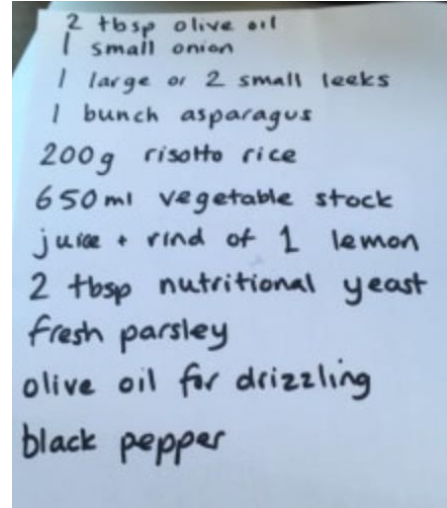 2 tbsp olive oil
1 small onion
1 large or 2 small leeks
1 bunch asparagus
200g risotto rice
650ml vegetable stock
juice + rind of 1 lemon
2 tbsp nutritional yeast
fresh parsley
olive oil for drizzling
black pepper